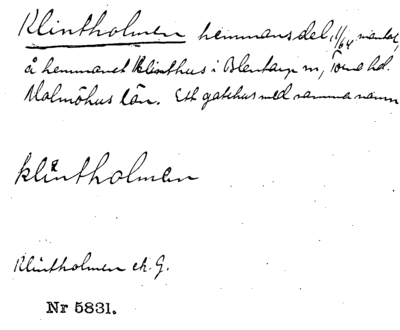 Klintholmen hemmansdel, 11/64 mantal,
å hemmanet Klinthus i Blentarp sn, Torna hd.
Malmöhus län. Ett gatehus med samma namn
klintholmen
Klintholmen ek. G.
Nr 5831.